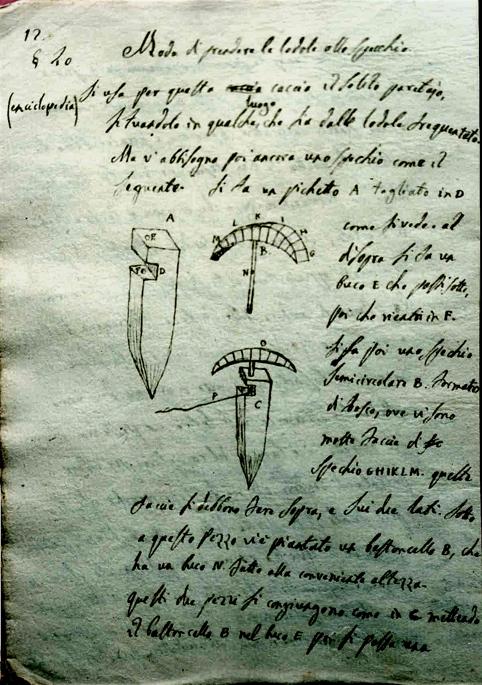 12
§ 20
Modo di prendere le lodole allo specchio.
(enciclopedia)
Si usa per questa caccia il solito paretajo,
situandolo in qualche luogo, che sia dalle lodole frequentato.
Ma v'abbisogna poi ancora uno specchio come il
seguente. Si fa un pichetto A tagliato in D
come si vede. al
disopra si fa un
buco E che passi sotto,
poi che rientri in F.
Si fa poi uno specchio
semicircolare B. formato
di bosco, ove vi sono
molte faccie di
specchio GHIKLM. queste
faccie si debbono fare sopra, e sui due lati. Sotto
a questo pezzo vi è piantato un bastoncello B, che
ha un buco N. fatto alla conveniente altezza.
questi due pezzi si congiungono come in C mettendo
il bastoncello B nel buco E poi si passa una
A
OE
F
D
M
L
K
I
H
G
B
N
O
P
C